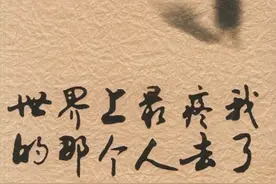 世界上最疼我
的那个人去了